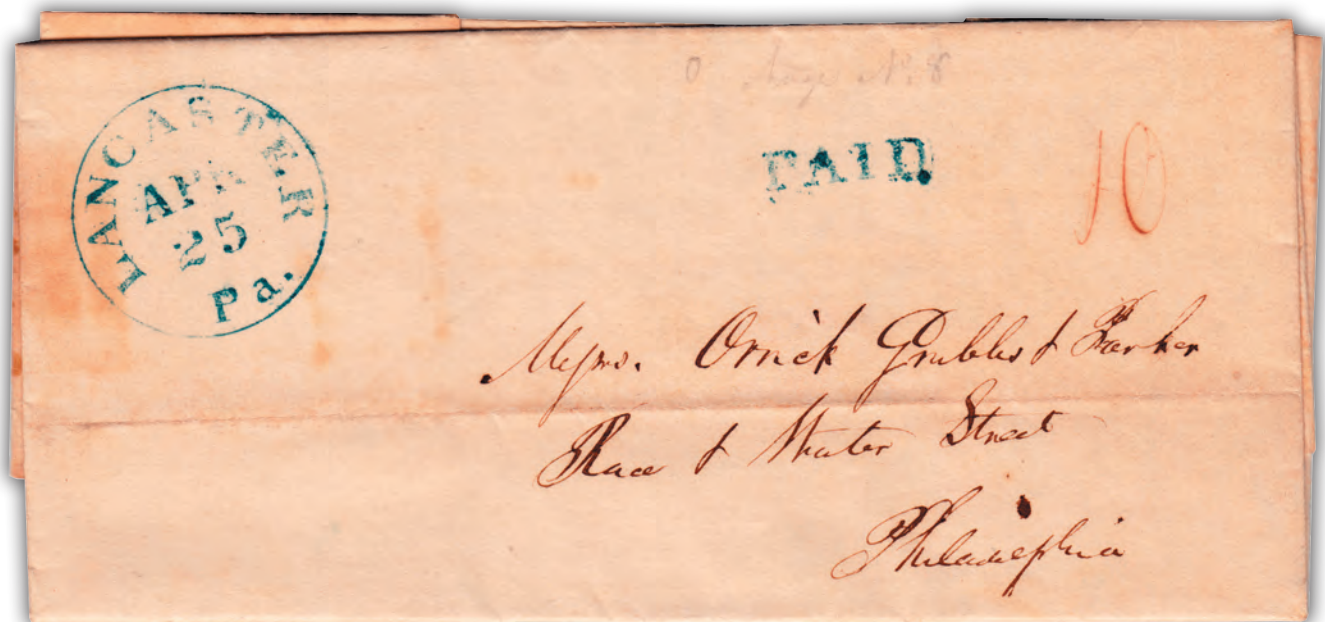 Nº 8
LANCASTER
APR
25
Pa.
PAID
10
Messrs. Orrick Grubbs & Parker
Race & Water Street
Philadelphia